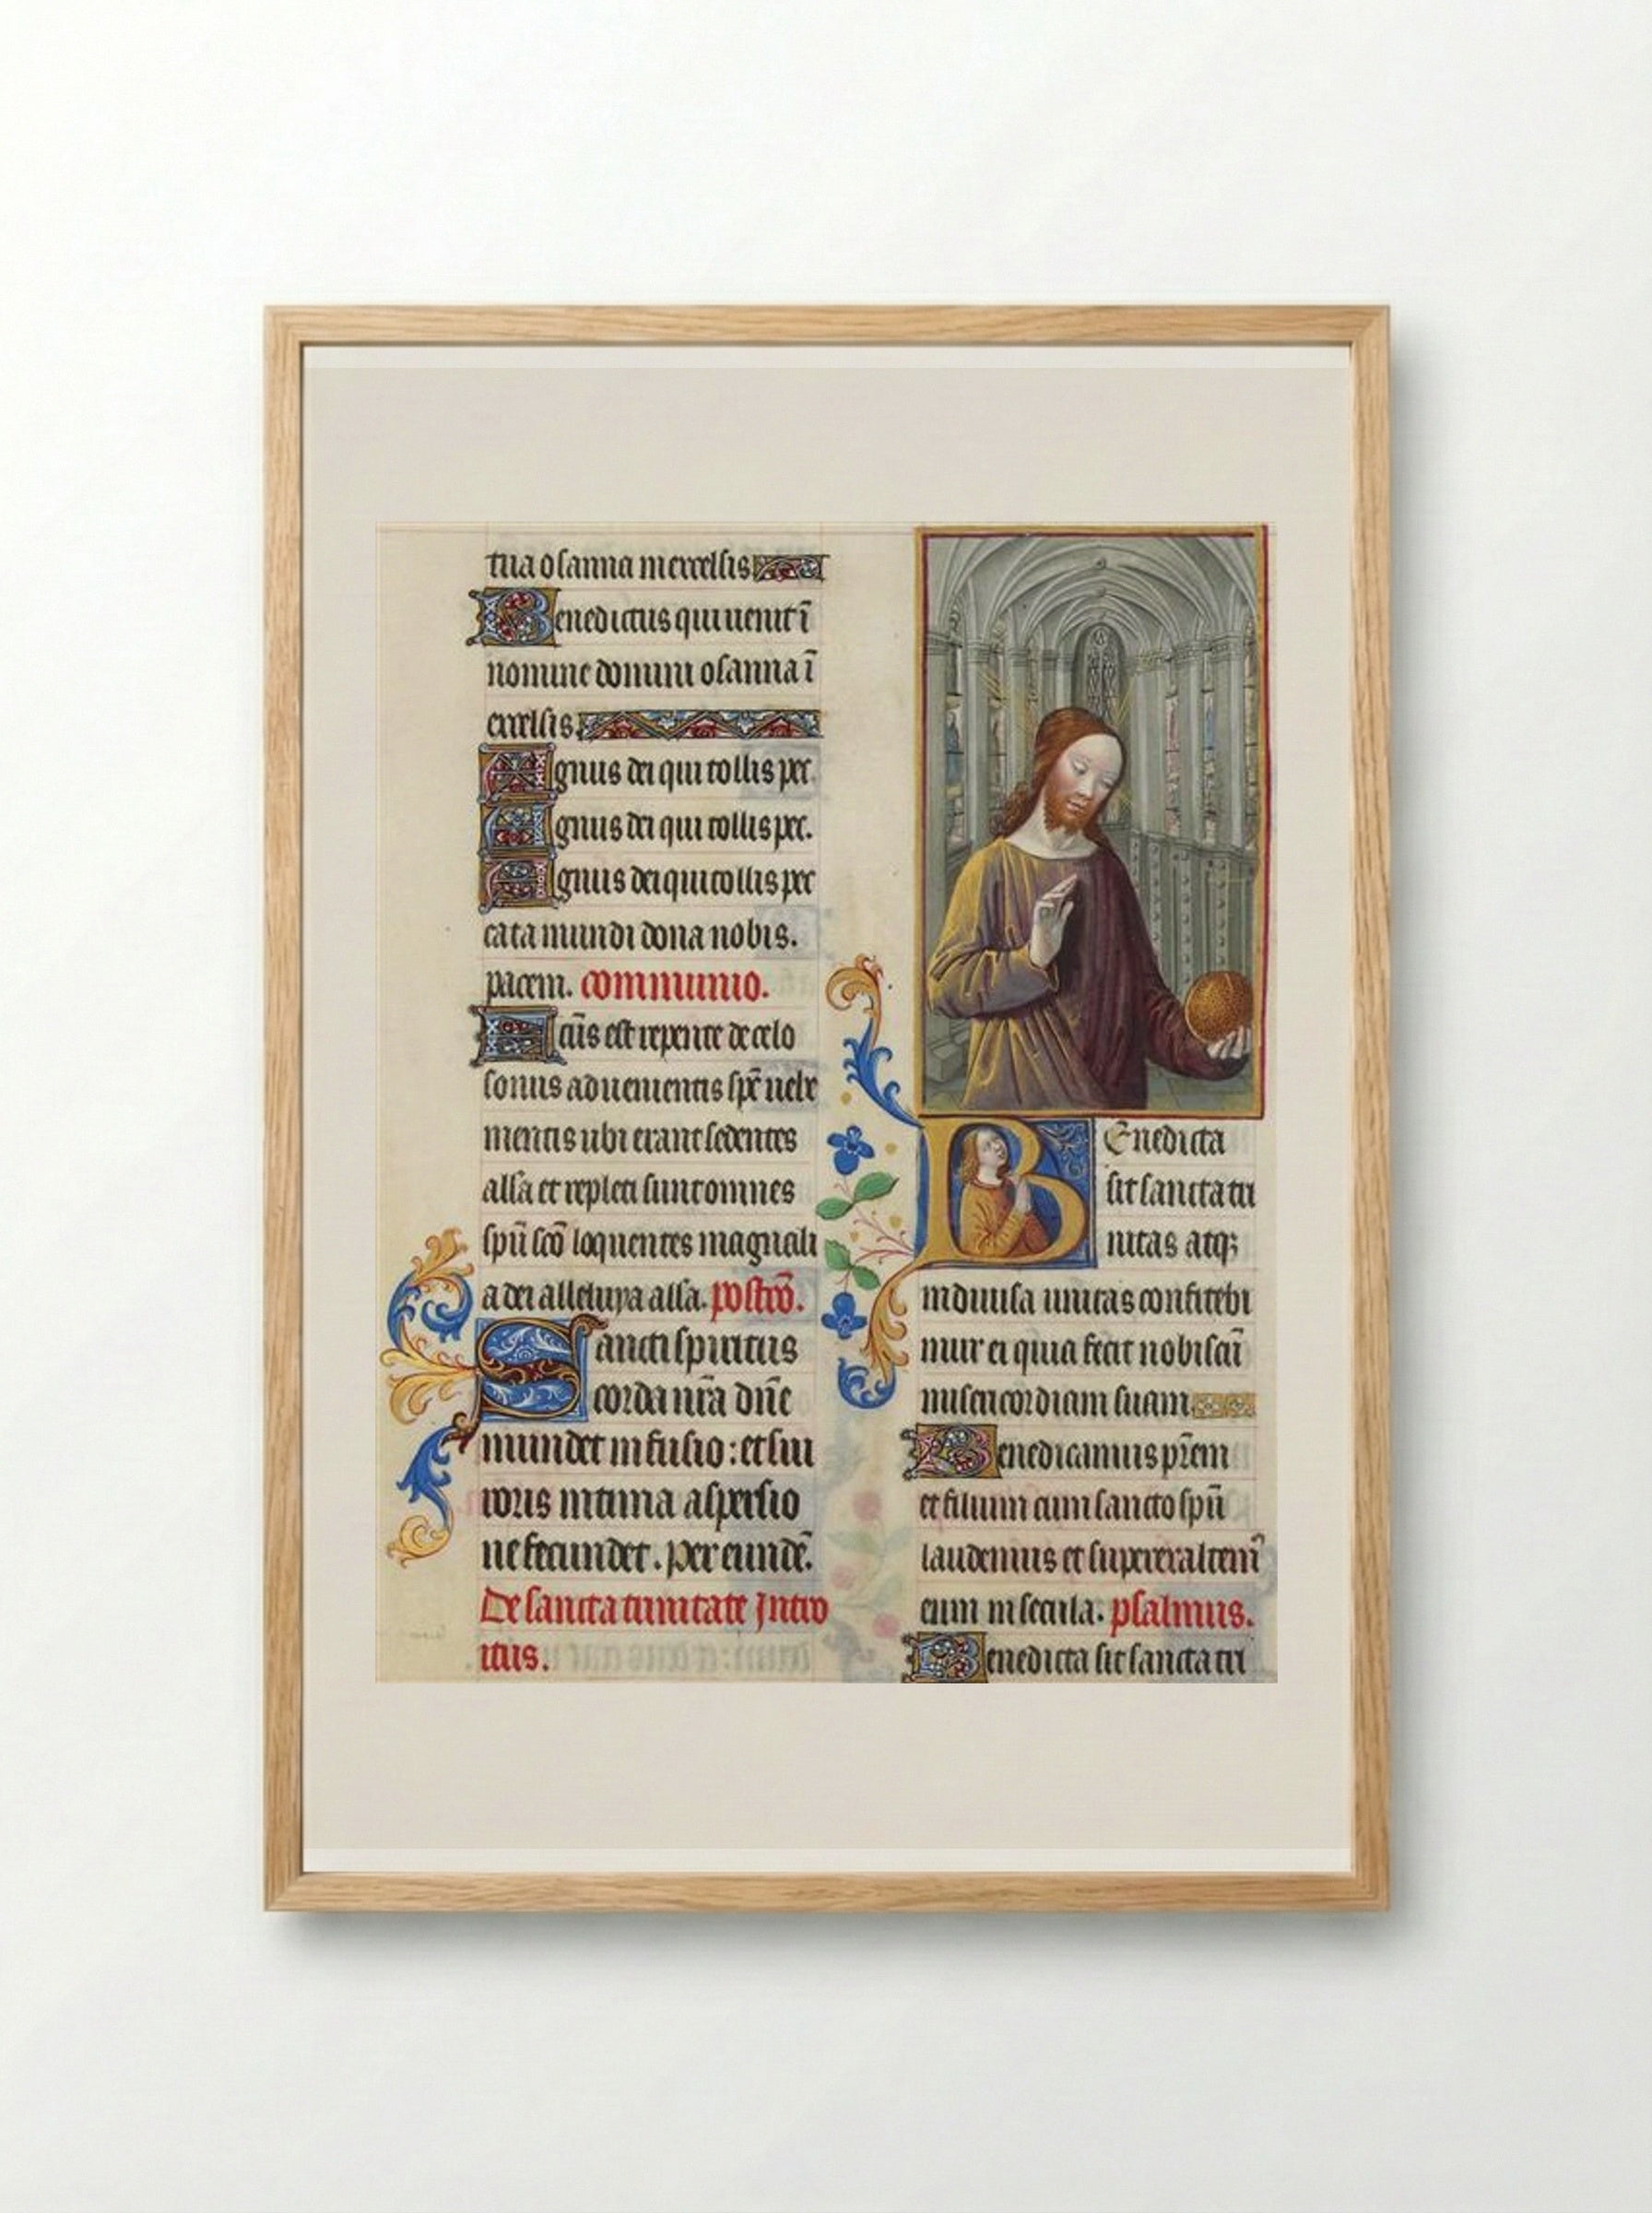 tua osanna in excelsis
Benedictus qui uenit ī
nomine domini osanna ī
excelsis.
Agnus dei qui tollis pec.
Agnus dei qui tollis pec.
Agnus dei qui tollis pec
cata mundi dona nobis.
pacem. communio.
Factūs est repente de celo
sonus aduenientis spē uehe
mentis ubi erant sedentes
alla et repleti sunt omnes
spū scō loquentes magnali
a dei alleluya alla. postcō.
Sancti spiritus
corda nr̄a dn̄e
mundet infusio : et sui
roris intima aspersio
ne fecundet. per eundē.
De sancta trinitate Intro
itus.
Benedicta
sit sancta tri
nitas atqꝫ
indiuisa unitas confitebi
mur ei quia fecit nobiscū
misericordiam suam
Benedicamus pr̄em
et filium cum sancto spū
laudemus et superexaltem⁹
eum in secula. psalmus.
Benedicta sit sancta tri